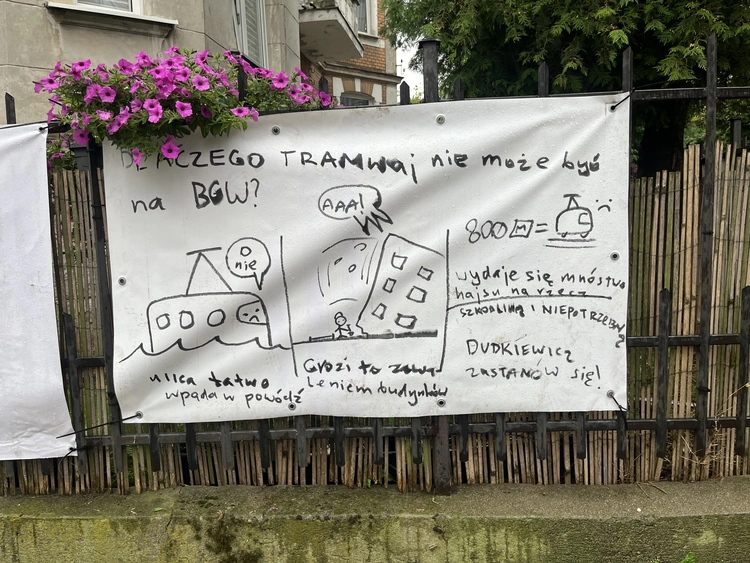 DLACZEGO TRAMWAJ nie może być
na BGW?
O
nie
AAA!
800 M =
ulica łatwo
wpada w powódź
Grozi to zawa
leniem budynków
wydaje się mnóstwo
hajsu na rzecz
SZKODLIWĄ i NIEPOTRZEBNĄ
DUDKIEWICZ
ZASTANÓW się!